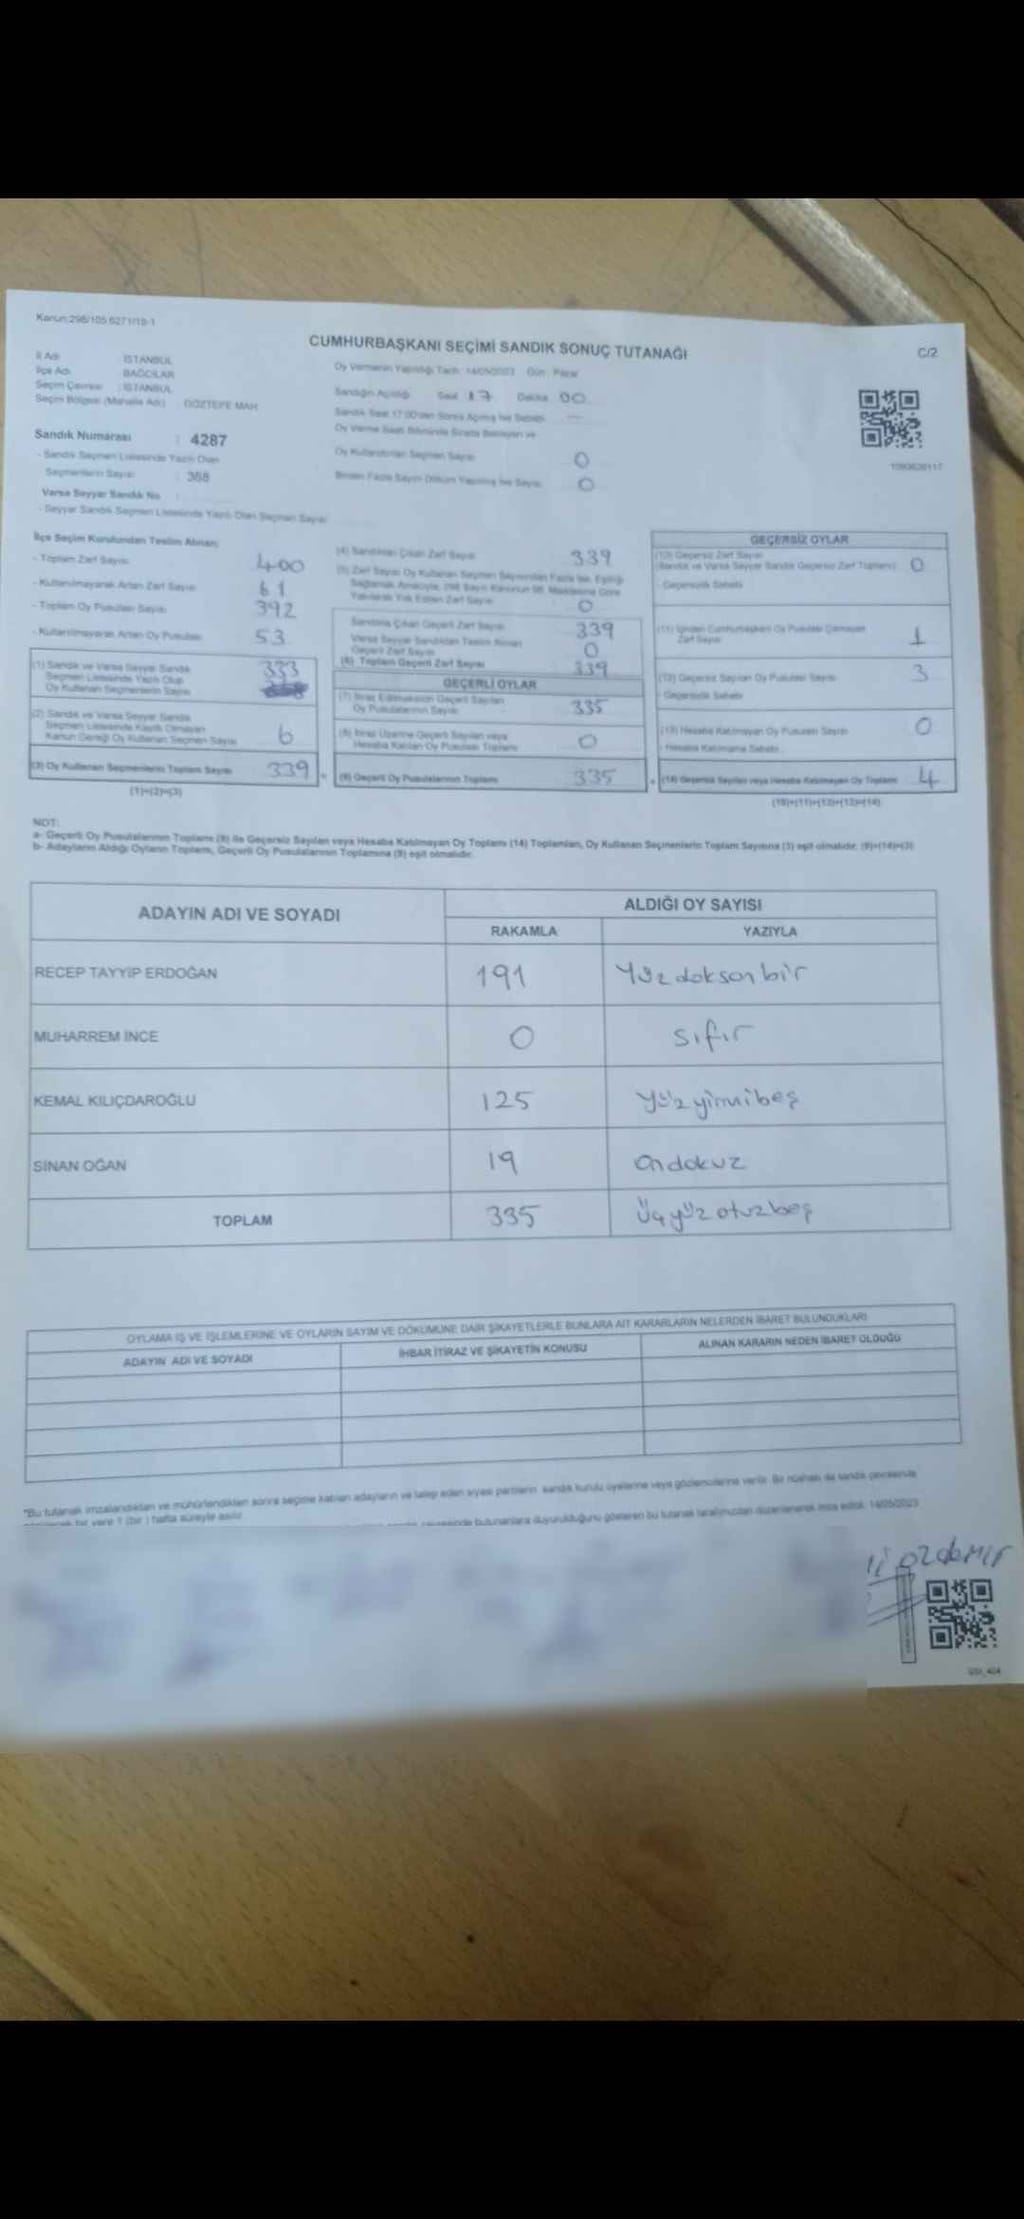 Kanun:298/105 6271/18-1
CUMHURBAŞKANI SEÇİMİ SANDIK SONUÇ TUTANAĞI
C/2
İl Adı İSTANBUL
İlçe Adı BAĞCILAR
Seçim Çevresi : İSTANBUL
Seçim Bölgesi (Mahalle Adı) : GÖZTEPE MAH
Sandık Numarası : 4287
- Sandık Seçmen Listesinde Yazılı Olan
Seçmenlerin Sayısı : 368
Varsa Seyyar Sandık No
- Seyyar Sandık Seçmen Listesinde Yazılı Olan Seçmen Sayısı
Oy Vermenin Yapıldığı Tarih: 14/05/2023 Gün : Pazar
Sandığın Açıldığı Saat 17 Dakika 00
Oy Kullandırılan Seçmen Sayısı 0
0
İlçe Seçim Kurulundan Teslim Alınan:
- Toplam Zarf Sayısı 400
- Kullanılmayarak Artan Zarf Sayısı 61
- Toplam Oy Pusulası Sayısı 392
- Kullanılmayarak Artan Oy Pusulası 53
(1) Sandık ve Varsa Seyyar Sandık
Seçmen Listesinde Yazılı Olup
Oy Kullanan Seçmenlerin Sayısı
333
(2) Sandık ve Varsa Seyyar Sandık
Seçmen Listesinde Kayıtlı Olmayan
Kanun Gereği Oy Kullanan Seçmen Sayısı 6
(3) Oy Kullanan Seçmenlerin Toplam Sayısı 339
(1)+(2)=(3)
(4) Sandıktan Çıkan Zarf Sayısı 339
0
Sandıkta Çıkan Geçerli Zarf Sayısı 339
Varsa Seyyar Sandıktan Teslim Alınan
Geçerli Zarf Sayısı 0
(6) Toplam Geçerli Zarf Sayısı 339
GEÇERLİ OYLAR
(7) İtiraz Edilmeksizin Geçerli Sayılan
Oy Pusulalarının Sayısı 335
(8) İtiraz Üzerine Geçerli Sayılan veya
Hesaba Katılan Oy Pusulası Toplamı 0
(9) Geçerli Oy Pusulalarının Toplamı 335
GEÇERSİZ OYLAR
(10) Geçersiz Zarf Sayısı
(Sandık ve Varsa Seyyar Sandık Geçersiz Zarf Toplamı) 0
- Geçersizlik Sebebi
(11) İçinden Cumhurbaşkanı Oy Pusulası Çıkmayan
Zarf Sayısı 1
(12) Geçersiz Sayılan Oy Pusulası Sayısı 3
- Geçersizlik Sebebi
(13) Hesaba Katılmayan Oy Pusulası Sayısı 0
- Hesaba Katılmama Sebebi
(14) Geçersiz Sayılan veya Hesaba Katılmayan Oy Toplamı 4
(10)+(11)+(12)+(13)=(14)
NOT:
a- Geçerli Oy Pusulalarının Toplamı (9) ile Geçersiz Sayılan veya Hesaba Katılmayan Oy Toplamı (14) Toplamları, Oy Kullanan Seçmenlerin Toplam Sayısına (3) eşit olmalıdır. (9)+(14)=(3)
b- Adayların Aldığı Oyların Toplamı, Geçerli Oy Pusulalarının Toplamına (9) eşit olmalıdır.
ADAYIN ADI VE SOYADI ALDIĞI OY SAYISI
RAKAMLA YAZIYLA
RECEP TAYYİP ERDOĞAN 191 Yüz doksan bir
MUHARREM İNCE 0 sıfır
KEMAL KILIÇDAROĞLU 125 yüz yirmibeş
SİNAN OĞAN 19 Ondokuz
TOPLAM 335 Üçyüz otuzbeş
OYLAMA İŞ VE İŞLEMLERİNE VE OYLARIN SAYIM VE DÖKÜMÜNE DAİR ŞİKAYETLERLE BUNLARA AİT KARARLARIN NELERDEN İBARET BULUNDUKLARI
ADAYIN ADI VE SOYADI İHBAR İTİRAZ VE ŞİKAYETİN KONUSU ALINAN KARARIN NEDEN İBARET OLDUĞU
*Bu tutanak imzalandıktan ve mühürlendikten sonra seçime katılan adayların ve talep eden siyasi partilerin sandık kurulu üyelerine veya gözlemcilerine verilir. Bir nüshası da sandık çevresinde
bir yere 1 (bir ) hafta süreyle asılır.
bulunanlara duyurulduğunu gösteren bu tutanak tarafımızdan düzenlenerek imza edildi. 14/05/2023
özdemir